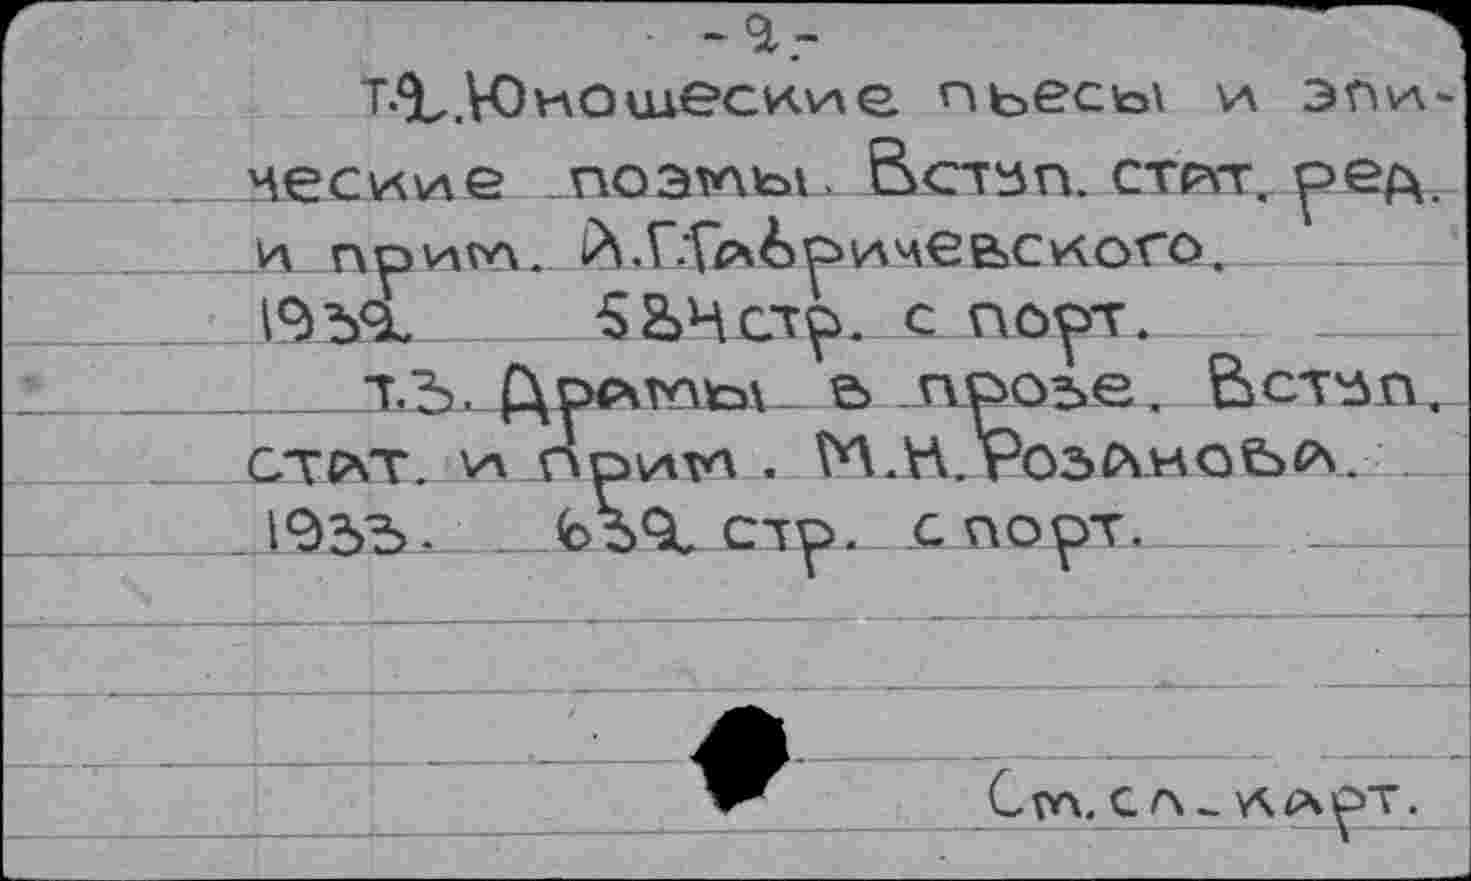 - 2 -
т.2. Юношеские пьесы и эпи-
ческие поэмы. Вступ. стат. ред.
и прим. А.Г.Габричевского.
1932 584 стр. с порт.
т.3. Драмы в прозе. Вступ.
стат. и прим. М.Н.Розанова.
1933. 632 стр. с порт.
См. сл. карт.